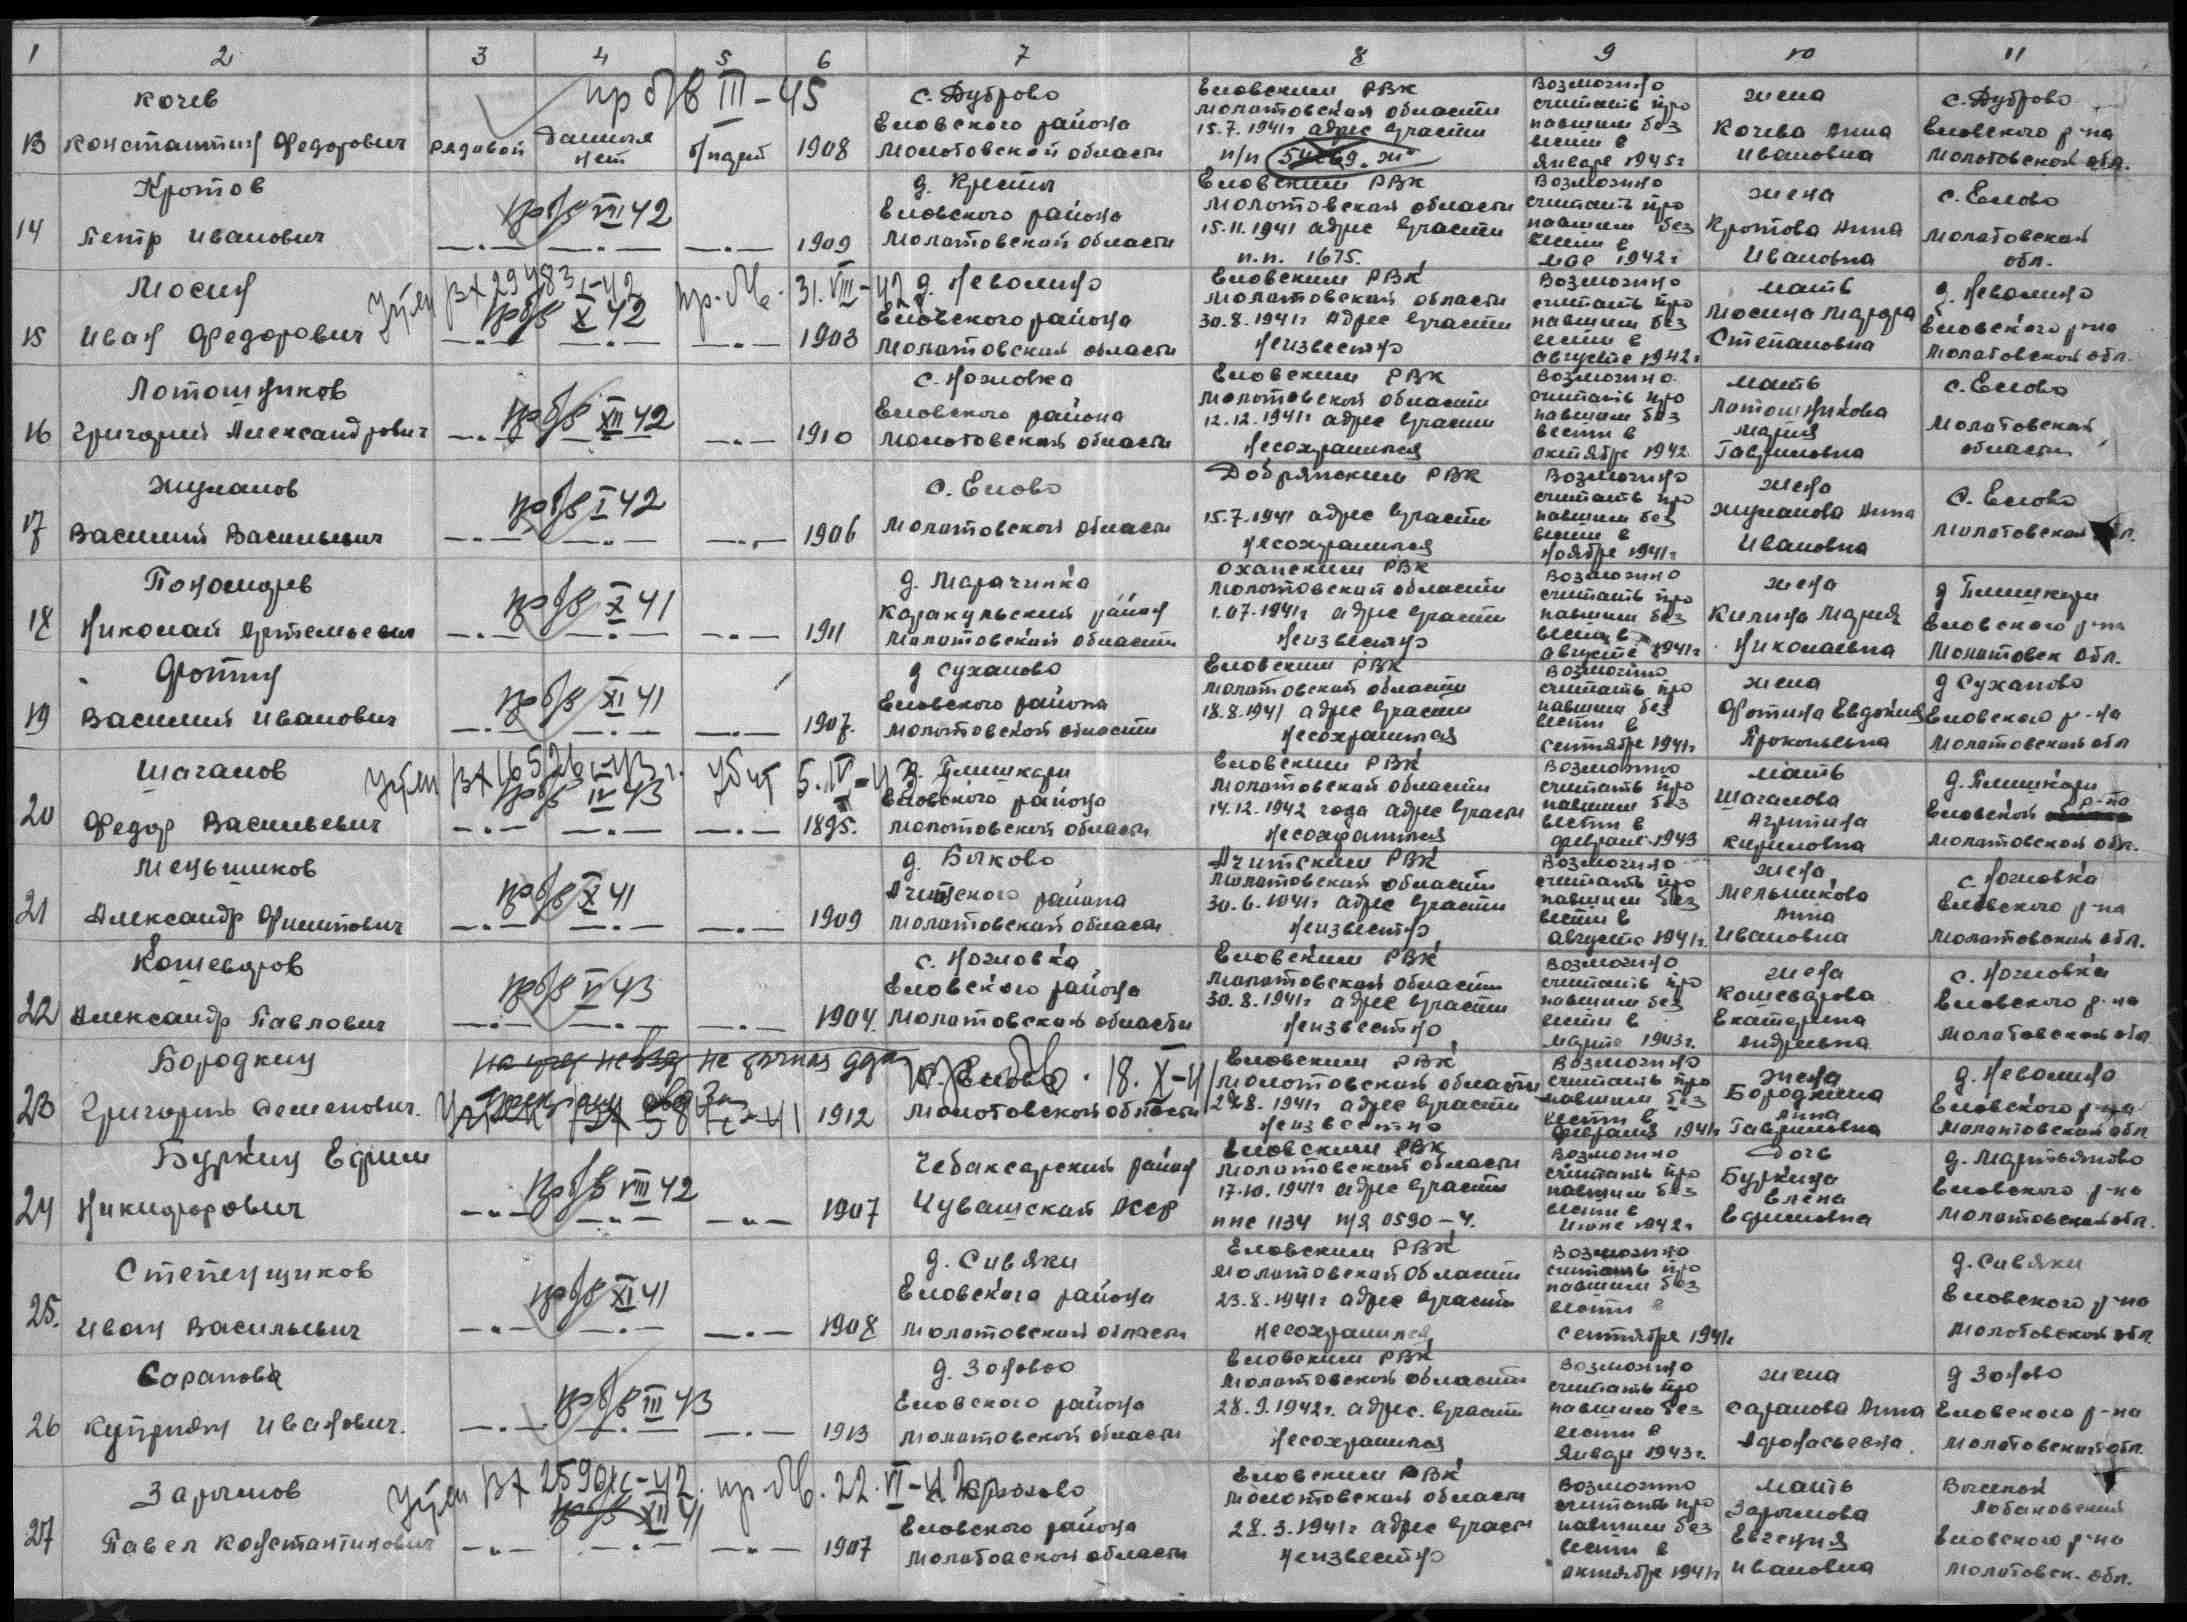 1 2 3 4 5 6 7 8 9 10 11
13
Кочев
Константин Федорович
рядовой
Данных
нет
пр б/в III-45
б/парт
1908
с. Дуброво
Еловского района
Молотовской области
Еловским РВК
Молотовская области
15.7.1941г адрес в/части
п/п
Возможно
считать про
павшим без
вести в
январе 1945г
жена
Кочева Анна
Ивановна
с. Дуброво
Еловского р-на
Молотовской обл.
14
Кротов
Петр Иванович
пр б/в VII 42
1909
д. Кресты
Еловского района
Молотовской области
Еловским РВК
Молотовской области
15.11.1941 адрес в/части
п.п. 1675.
Возможно
считать про
павшим без
вести в
мае 1942г
жена
Кротова Анна
Ивановна
с. Елово
Молотовской
обл.
15
Мосин
Иван Федорович
пр б/в X 42
пр. б/в. 31.VIII-42
1903
д. Неволино
Еловского района
Молотовской области
Еловским РВК
Молотовской области
30.8.1941г адрес в/части
неизвестно
Возможно
считать про
павшим без
вести в
августе 1942г
мать
Мосина
Степановна
д. Неволино
Еловского р-на
Молотовской обл.
16
Лотошников
Григорий Александрович
пр б/в XII 42
1910
с. Ножовка
Еловского района
Молотовской области
Еловским РВК
Молотовской области
12.12.1941г адрес в/части
несохранился
Возможно
считать про
павшим без
вести в
октябре 1942
мать
Лотошникова
Мария
Гавриловна
с. Елово
Молотовской
области
17
Жуланов
Василий Васильевич
пр б/в I 42
1906
с. Елово
Молотовской области
Добрянским РВК
15.7.1941 адрес в/части
несохранился
Возможно
считать про
павшим без
вести в
ноябре 1941г
жена
Жуланова Анна
Ивановна
с. Елово
Молотовской
18
Пономарев
Николай Артемьевич
пр б/в X 41
1911
д. Марачинка
Каракульский район
Молотовской области
Оханским РВК
Молотовской области
1.07.1941г адрес в/части
неизвестно
Возможно
считать про
павшим без
вести в
августе 1941г
жена
Килина Мария
Николаевна
д Плишкари
Еловского р-на
Молотовск обл.
19
Фотин
Василий Иванович
пр б/в XI 41
1907.
д Суханово
Еловского района
Молотовской области
Еловским РВК
Молотовской области
18.8.1941 адрес в/части
несохранился
Возможно
считать про
павшим без
вести в
сентябре 1941г
жена
Фотина Евдокия
Прокопьевна
д Суханово
Еловского р-на
Молотовской обл
20
Шагалов
Федор Васильевич
пр б/в IV 43
убит 5.IV-43
1895.
д. Плишкари
Еловского района
Молотовской области
Еловским РВК
Молотовской области
14.12.1942 года адрес в/части
несохранился
Возможно
считать про
павшим без
вести в
феврале 1943
мать
Шагалова
Агрипина
Кириловна
д. Плишкари
Еловской р-на
Молотовской обл.
21
Мельшиков
Александр Филиппович
пр б/в X 41
1909
д. Быково
Ачитского района
Молотовской области
Ачитским РВК
Молотовской области
30.6.1941г адрес в/части
неизвестно
Возможно
считать про
павшим без
вести в
августе 1941г.
жена
Мельшикова
Анна
Ивановна
с. Ножовка
Еловского р-на
Молотовской обл.
22
Кошеваров
Александр Павлович
пр б/в V 43
1904.
с. Ножовка
Еловского района
Молотовской области
Еловским РВК
Молотовской области
30.8.1941г адрес в/части
неизвестно
Возможно
считать про
павшим без
вести в
марте 1943г.
жена
Кошеварова
Екатерина
Андреевна
с. Ножовка
Еловского р-на
Молотовской обл
23
Бородкин
Григорий Семенович.
18.X-41
1912
с. Елово
Молотовской области
Еловским РВК
Молотовской области
адрес в/части
неизвестно
Возможно
считать про
павшим без
вести в
февраля 1941г
жена
Бородкина
Анна
Гавриловна
д. Неволино
Еловского р-на
Молотовской обл
24
Буркин Ефим
Никифорович
пр б/в VIII 42
1907
Чебаксарский район
Чувашской АССР
Еловским РВК
Молотовской области
17.10.1941г адрес в/части
ппс 1134 п/я 0590-4.
Возможно
считать про
павшим без
вести в
июне 1942г
дочь
Буркина
Елена
Ефимовна
д. Мартьяново
Еловского р-на
Молотовской обл.
25.
Степенщиков
Иван Васильевич
пр б/в XI 41
1908
д. Сивяки
Еловского района
Молотовской области
Еловским РВК
Молотовской области
23.8.1941г адрес в/части
несохранился
Возможно
считать про
павшим без
вести в
сентября 1941г
д. Сивяки
Еловского р-на
Молотовской обл
26
Сарапова
Куприян Иванович.
пр б/в III 43
1913
д. Зоново
Еловского района
Молотовской области
Еловским РВК
Молотовской области
28.9.1942г. адрес. в/части
несохранился
Возможно
считать про
павшим без
вести в
январе 1943г.
жена
Сарапова Анна
Афонасьевна.
д Зоново
Еловского р-на
Молотовской обл.
27
Зарымов
Павел Константинович
пр б/в XII 41
пр. б/в. 22.VI-42
1907
Еловского района
Молотовской области
Еловским РВК
Молотовской области
28.3.1941г адрес в/части
неизвестно
Возможно
считать про
павшим без
вести в
октябре 1941г
мать
Зарымова
Евгения
Ивановна
Лобановский
Еловского р-на
Молотовск. обл.